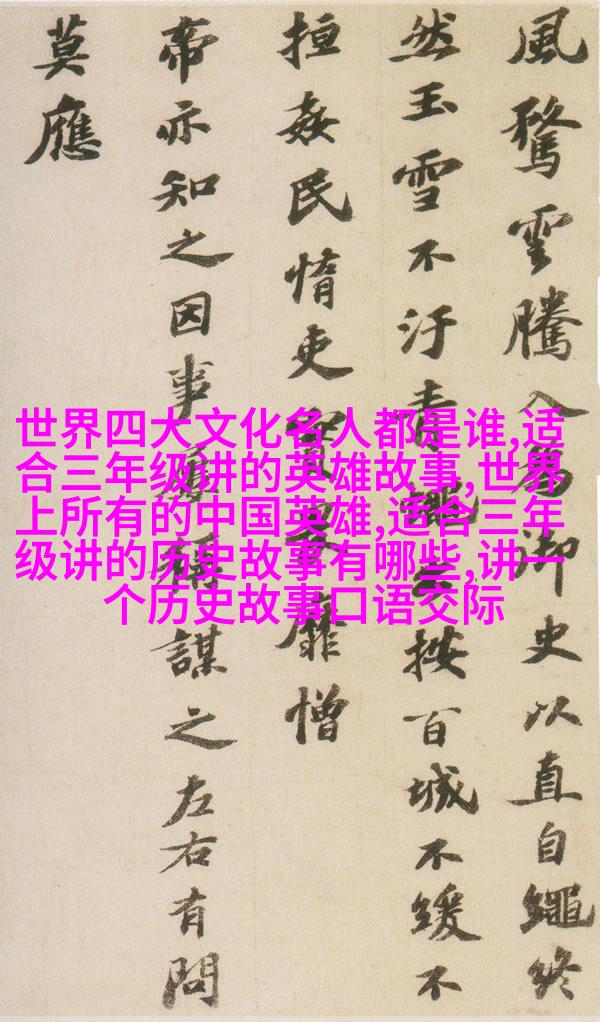 世界四大文化名人都是谁,适
合三年级讲的英雄故事,世界
上所有的中国英雄,适合三年
级讲的历史故事有哪些,讲一
个历史故事口语交际
風騖雲騰入為御史以直自繩終
然玉雪不汙青蠅三按百城不緩不
搄姦民惰吏實畏靡憎
帝亦知之因事謀之左右有問
莫應